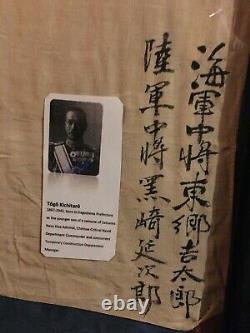 海軍中將東郷吉太郎
陸軍中將黑崎延次郎
Tōgō Kichitarō
1867-1942, born in Kagoshima Prefecture
as the younger son of a samurai of Satsuma
Navy Vice Admiral, Chinkai Critical Naval
Department Commander and concurrent
Temporary Construction Department
Manager